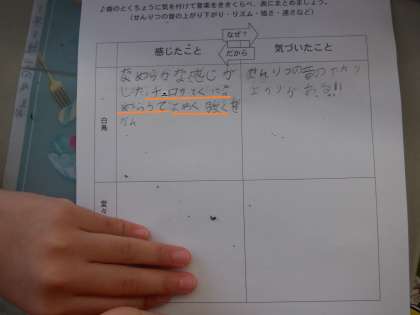 ♪曲のとくちょうに気を付けて音楽をききくらべ、表にまとめましょう。
（せんりつの音の上がり下がり・リズム・強さ・速さなど）
なぜ？
だから
感じたこと
気づいたこと
白鳥
なめらかな感じが
した。チェロがとくにな
めらかで
強く
せんりつの音の
上がりがある!!
堂々